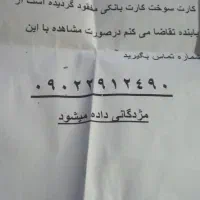 کارت سوخت کارت بانکی مفقود گردیده است از
یابنده تقاضا می کنم درصورت مشاهده با این
شماره تماس بگیرید
۰۹۰۲۲۹۱۲۴۹۰
مژدگانی داده میشود